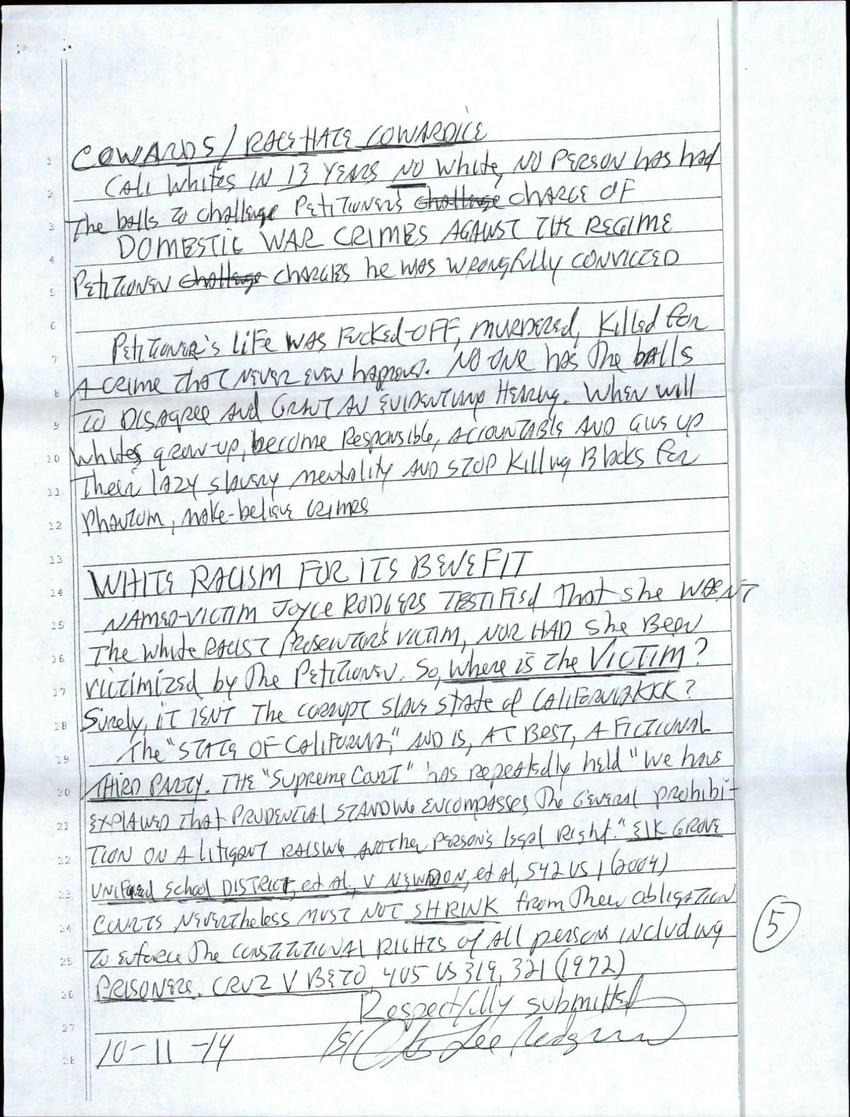 COWARDS / RACE HATE COWARDICE
CALI WHITES IN 13 YEARS NO White, NO PERSON HAS had
The balls to challenge PETITIONER'S challenge CHARGE OF
DOMESTIC WAR CRIMES AGAINST THE REGIME
PETITIONER challenge CHARGES he WAS WRONGFULLY CONVICTED
PETITIONER'S LIFE WAS FUCKED-OFF, MURDERED, Killed for
A CRIME that NEVER EVEN happened. NO ONE has The balls
TO DISAGREE AND GRANT AN EVIDENTIARY HEARING. When will
whites grow-up, become Responsible, ACCOUNTABLE AND GIVE UP
Their lazy slavery mentality AND STOP Killing Blacks for
Phantom, make-believe crimes
WHITE RACISM FOR ITS BENEFIT
NAMED-VICTIM JOYCE RODGERS TESTIFIED That she WASN'T
The White RACIST Prosecutor's VICTIM, NOR HAD she BEEN
victimized by The PETITIONER. So, Where is the VICTIM?
Surely, IT ISNT The corrupt slave state of CALIFORNIAKKK?
The "STATE OF CALIFORNIA," AND IS, AT BEST, A FICTIONAL
THIRD PARTY. THE "SUPREME COURT" has repeatedly held "We have
EXPLAINED THAT PRUDENTIAL STANDING ENCOMPASSES The GENERAL prohibi-
TION ON A litigant RAISING ANOTHER PERSON'S legal Right." ELK GROVE
UNIFIED School DISTRICT, et al, V NEWDON, et al, 542 US 1 (2004)
COURTS NEVERTHELESS MUST NOT SHRINK from Their obligation
to enforce The CONSTITUTIONAL RIGHTS of All persons including
PRISONERS. CRUZ V BETO 405 US 319, 321 (1972)
Respectfully submitted
10-11-14 /s/ Lee
5
1
2
3
4
5
6
7
8
9
10
11
12
13
14
15
16
17
18
19
20
21
22
23
24
25
26
27
28